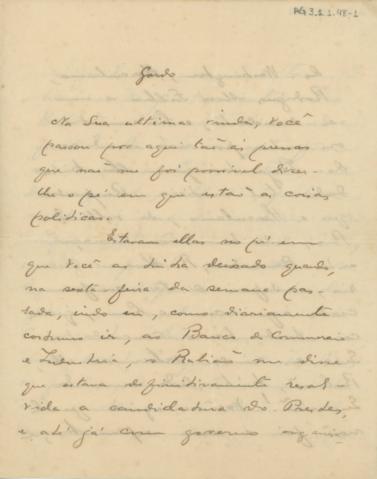 PG 3.2.1.48-1
Gordo
Na sua ultima vinda, Você
passou por aqui tão ás pressas
que não me foi possivel dizer-
lhe o pé em que estão as coisas
politicas.
Estavam ellas no pé em
que Você as tinha deixado quando,
na sexta-feira da semana pas-
sada, indo eu, como diariamente
costumo ir, ao Banco do Commercio
e Industria, o Rubião me disse
que estava definitivamente resol-
vida a candidatura do Prestes,
e até já com governo organi-